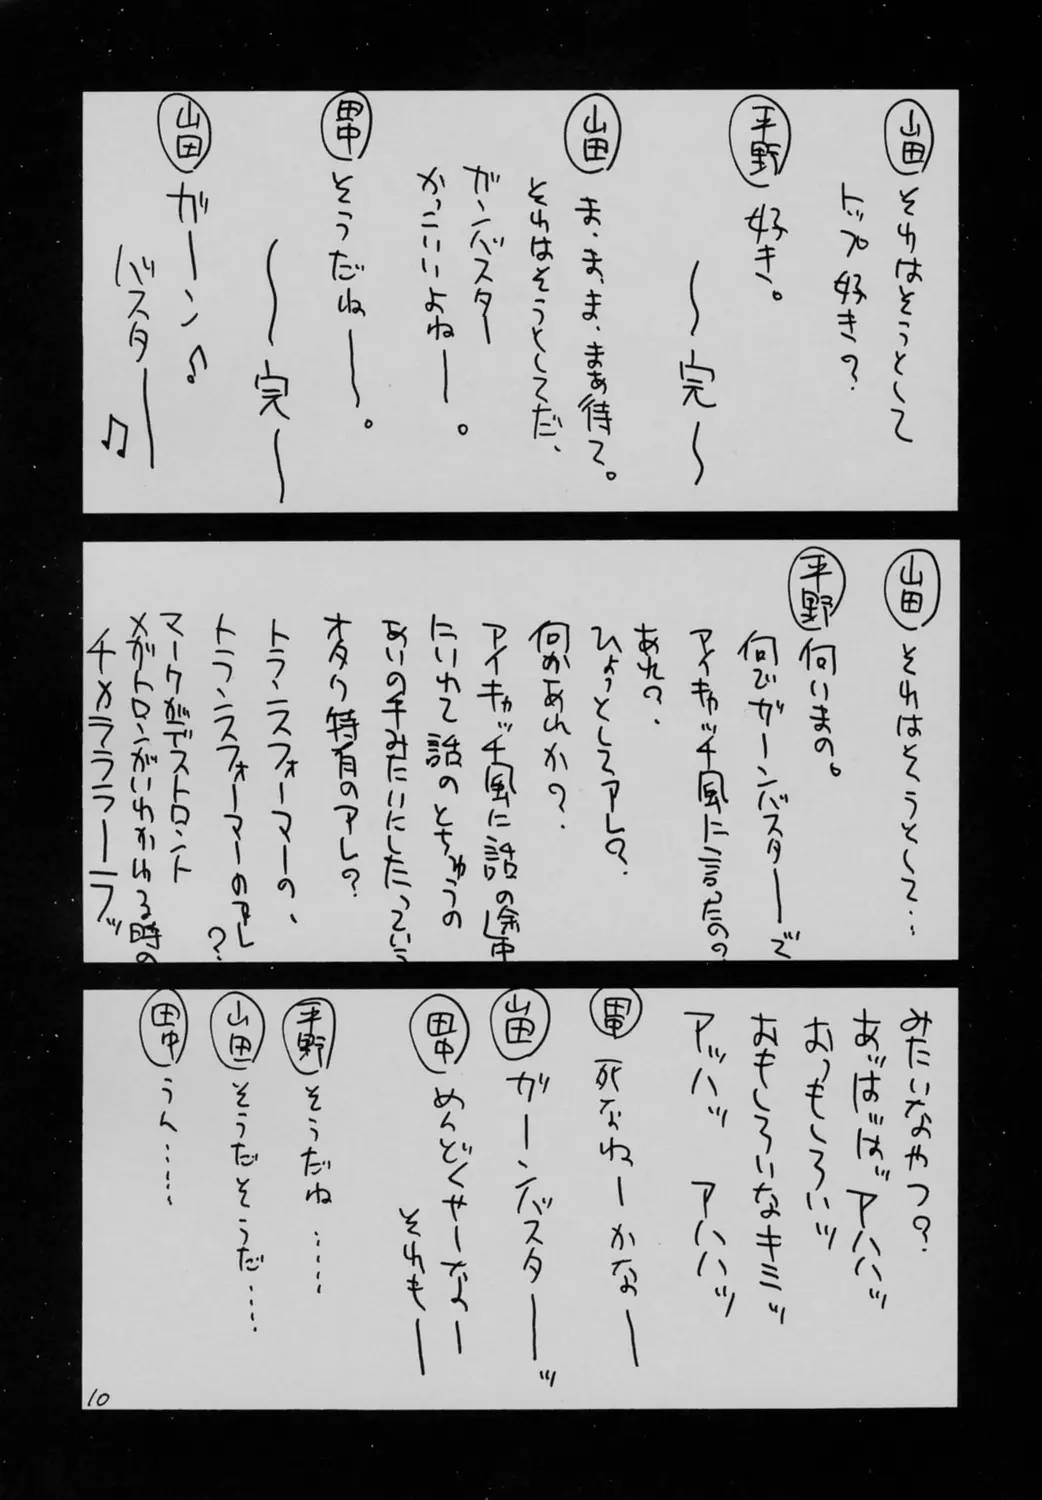 山田 それはそうとして
トップ好き?
平野 好き。
〜完〜
山田 ま、ま、ま、まぁ待て。
それはそうとしてだ、
ガンバスター
かっこいいよねー。
田中 そうだねー。
〜完〜
山田 ガーン♪
バスター♫
山田 それはそうとして…
平野 何いまの。
何でガーンバスターで
アイキャッチ風に言ったの?
あれ?
ひょっとしてアレ?
何かあれか?
アイキャッチ風に話の途中
にいれて話のとちゅうの
あいの手みたいにしたっていう
オタク特有のアレ?
トランスフォーマーの、
トランスフォーマーのアレ?
マークがデストロント
メガトロンがいれかわる時の
チャラララーラッ
みたいなやつ?
あッはッはッアハハッ
おっもしろいッ
おもしろいなキミッ
アッハッ アハハッ
田中 死なねーかなー
山田 ガーンバスターーッ
田中 めんどくせーなー
それもー
平野 そうだね……
山田 そうだそうだ……
田中 うん……
10